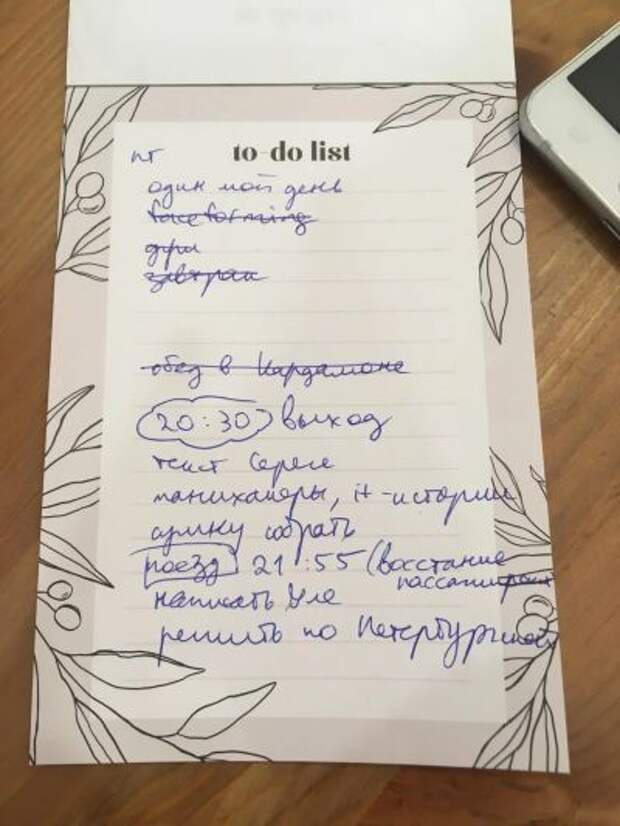 to-do list
пт
один мой день
faceforming
завтрак
обед в Кардамоне
20:30 выход
текст Сереге
it-истории
сумку собрать
поезд 21:55 (восстание
написать Уле
решить по Петербургской